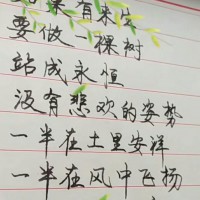 如果有来生
要做一棵树
站成永恒
没有悲欢的姿势
一半在土里安详
一半在风中飞扬